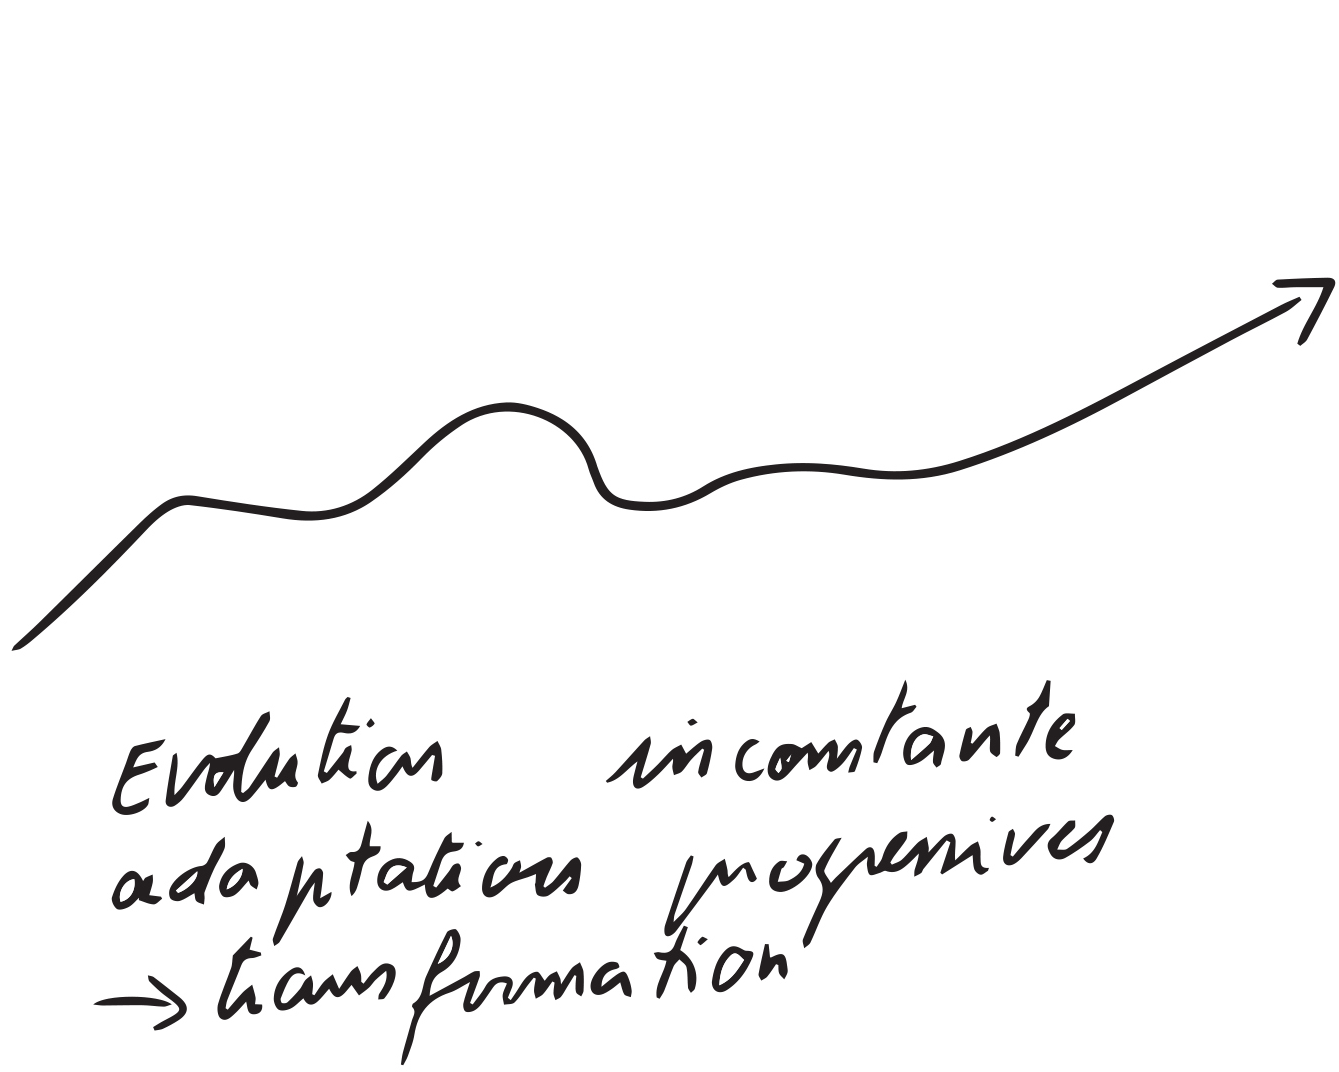 Evolution inconstante
adaptations progressives
→ transformation